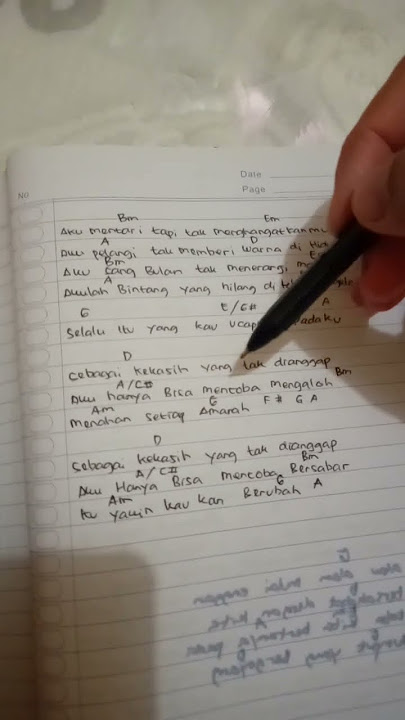 No
Date
Page
Bm Em
Aku mentari tapi tak menghangatkanmu
A D
Aku pelangi tak memberi warna di
Bm
Aku sang Bulan tak menerangi
A
Akulah Bintang yang hilang di
G E/G# A
Selalu itu yang kau ucap
D
Sebagai kekasih yang tak dianggap
A/C# Bm
Aku hanya Bisa mencoba mengalah
Am G F# G A
menahan setiap Amarah
D
Sebagai kekasih yang tak dianggap
A/C# Bm
Aku Hanya Bisa mencoba Bersabar
Am G A
Ku yakin kau kan Berubah